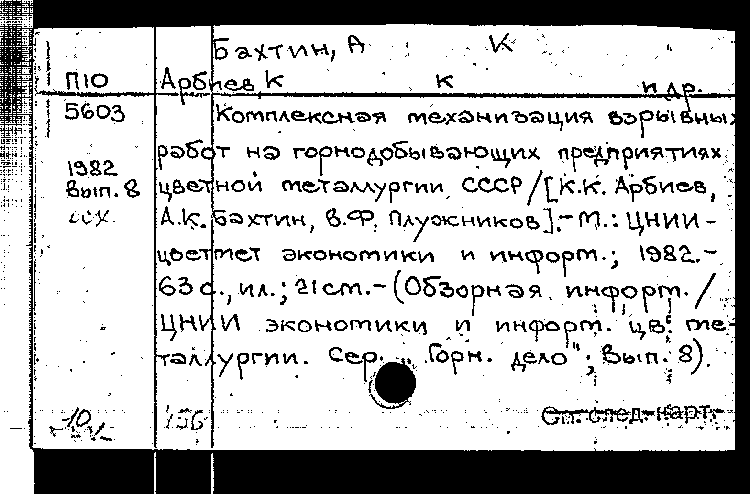 Бахтин, А К
П10 Арбиев, К К и др.
5603 Комплексная механизация взрывных
работ на горнодобывающих предприятиях
1982
вып. 8 цветной металлургии СССР / [К.К. Арбиев,
А.К. Бахтин, В.Ф. Плужников].- М.: ЦНИИ-
цветмет экономики и информ.; 1982.-
63 с., ил.; 21 см.- (Обзорная информ. /
ЦНИИ экономики и информ. цв. ме-
таллургии. Сер. "Горн. дело"; Вып. 8).
10 156 См. след. карт.